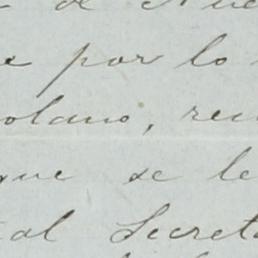 de
e por lo
olano, reu
que se le
al Secreta